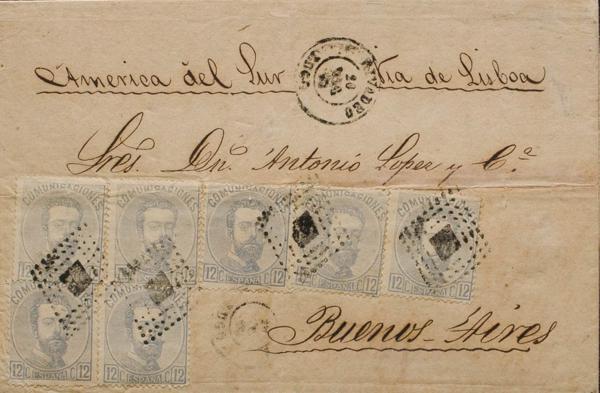 América del Sur Vía de Lisboa
Sres. Dn. Antonio Lopez y Cª
COMUNICACIONES COMUNICACIONES COMUNICACIONES COMUNICACIONES COMUNICACIONES
12 12 C ESPAÑA C 12 12 C ESPAÑA C 12 12 C ESPAÑA C 12
COMUNICACIONES COMUNICACIONES
Buenos-Aires
12 C ESPAÑA C 12 12 C ESPAÑA C 12